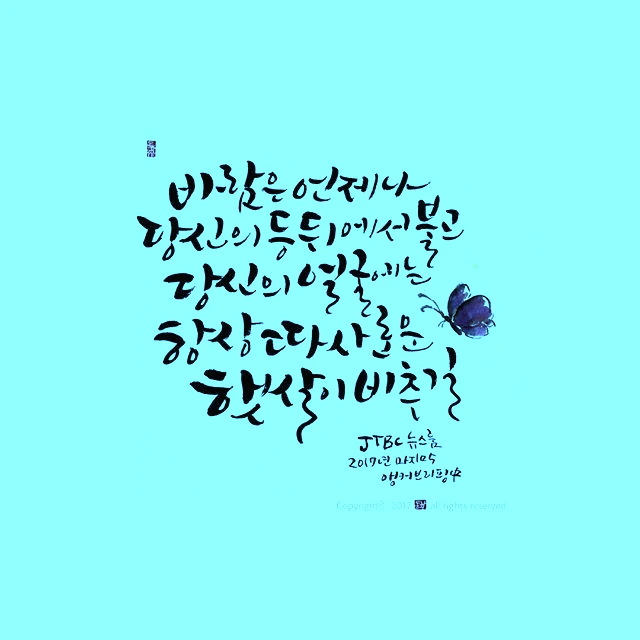 바람은 언제나
당신의 등뒤에서 불고
당신의 얼굴에는
항상 따사로운
햇살이 비추길
JTBC 뉴스룸
2017년 마지막
앵커브리핑中
Copyright© 2017 all rights reserved